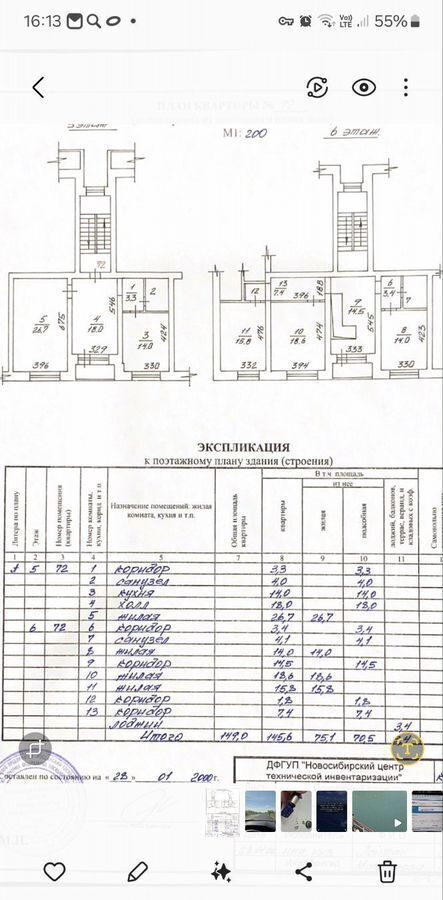 16:13
Vo)) LTE
55%
ПЛАН КВАРТИРЫ № 72
5 этаж
М1: 200
6 этаж
72
1 3,3
2
546
5 26,7
675
4 18,0
3 14,0
424
396
329
330
13 7,4
396
188
12
9 14,5
6 3,4
7
11 15,8
476
10 18,6
474
545
8 14,0
423
332
394
333
330
ЭКСПЛИКАЦИЯ
к поэтажному плану здания (строения)
Литера по плану
Этаж
Номер помещения (квартиры)
Номер комнаты, кухни, корид. и т.п.
Назначение помещений: жилая комната, кухня и т.п.
Общая площадь квартиры
В т.ч. площадь
из нее
квартиры
жилая
подсобная
лоджий, балконов, террас, веранд, и кладовых с коэф.
Самовольно
1 2 3 4 5 7 8 9 10 11
А 5 72 1 коридор 3,3 3,3
2 санузел 4,0 4,0
3 кухня 14,0 14,0
4 холл 18,0 18,0
5 жилая 26,7 26,7
6 72 6 коридор 3,4 3,4
7 санузел 4,1 4,1
8 жилая 14,0 14,0
9 коридор 14,5 14,5
10 жилая 18,6 18,6
11 жилая 15,8 15,8
12 коридор 1,8 1,8
13 коридор 7,4 7,4
лоджии 3,4
Итого 149,0 145,6 75,1 70,5
оставлен по состоянию на « 28 » 01 2000г.
ДФГУП "Новосибирский центр
технической инвентаризации"
М.П.